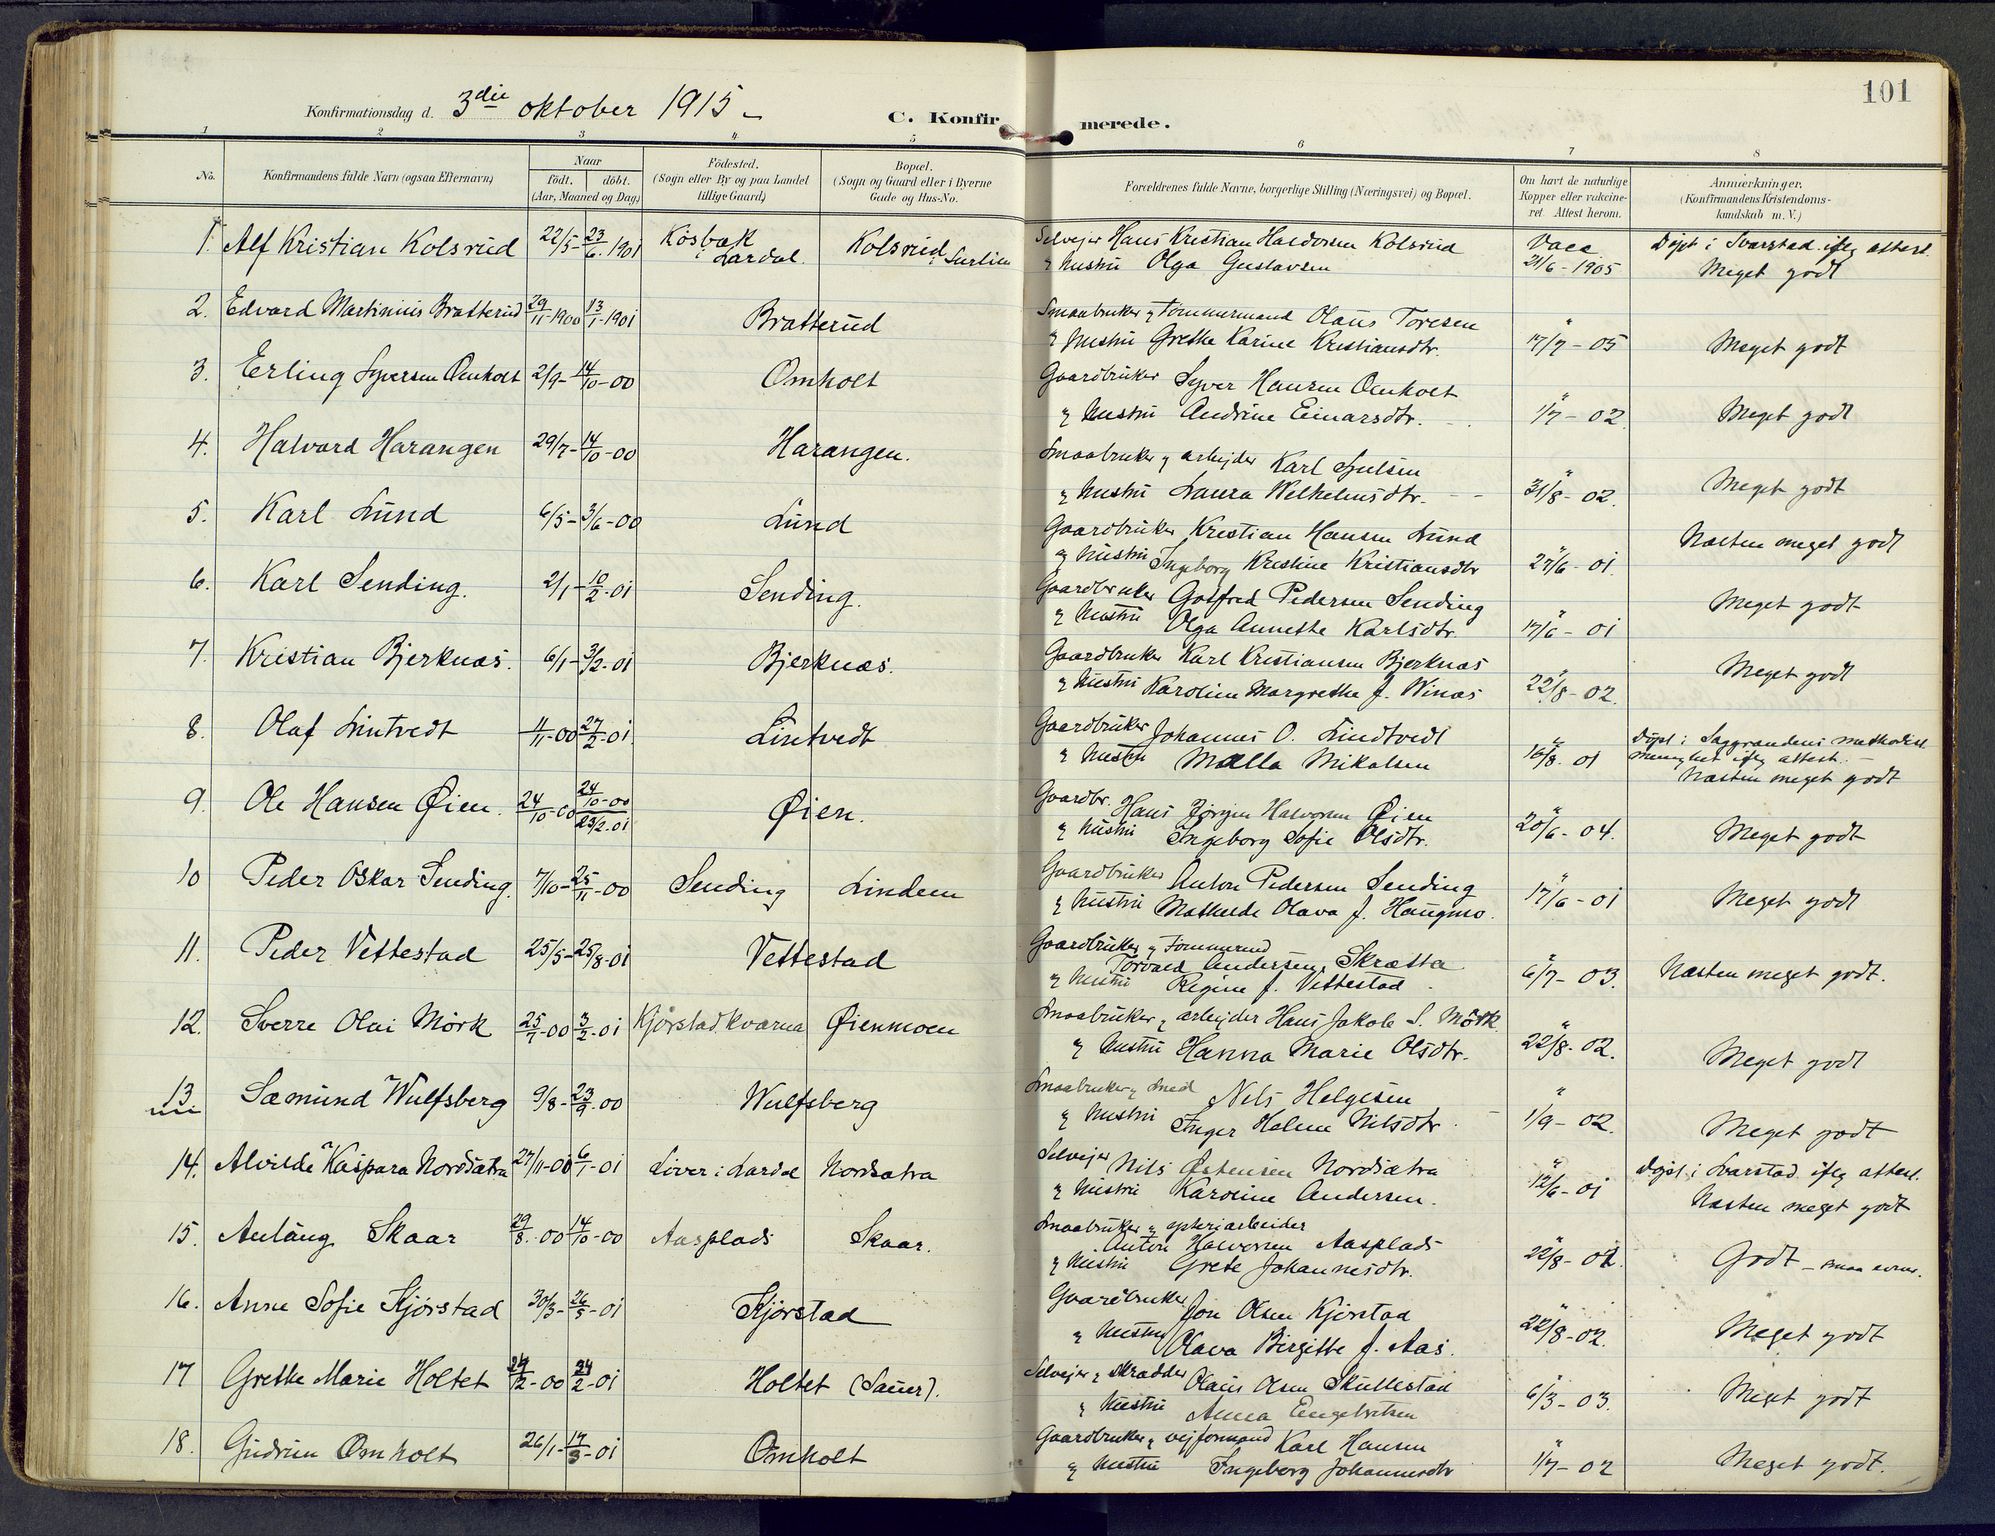 101
Konfirmationsdag d. 3die oktober 1915 –
C. Konfirmerede.
1 2 3 4 5 6 7 8
No.
Konfirmandens fulde Navn (ogsaa Efternavn)
Naar
født. døbt.
(Aar, Maaned og Dag)
Fødested.
(Sogn eller By og paa Landet
tillige Gaard)
Bopæl.
(Sogn og Gaard eller i Byerne
Gade og Hus-No.
Forældrenes fulde Navne, borgerlige Stilling (Næringsvei) og Bopæl.
Om havt de naturlige
Kopper eller vakcine-
ret Attest herom.
Anmærkninger.
(Konfirmandens Kristendoms-
kundskab m. V.)
1. Alf Kristian Kolsrud 22/5- 23/6 1901 Lardal. Kolsrud Selvejer Hans Kristian Halvorsen Kolsrud Vacc Døpt i Svarstad iflg attest.
& Hustru Olga Gustavsen 21/6-1905 Meget godt
2. Edvard Martinius Bratterud 29/11-1900 13/1-1901 Bratterud Smaabruker & tømmermand Olaus Toresen
& Hustru Grethe Karine Kristiansdtr. 17/7 - 05 Meget godt
3. Erling Syversen Omholt 2/9- 14/10-00 Omholt Gaardbruker Syver Hansen Omholt
& Hustru Andrine Einarsdtr. 1/7 - 02 Meget godt
4. Halvard Harangen 29/7- 14/10-00 Harangen. Smaabruker & arbejder Karl
& Hustru Laura Wilhelmsdtr. 31/8 - 02 Meget godt
5. Karl Lund 6/5- 3/6-00 Lund Gaardbruker Kristian Hansen Lund Næsten meget godt
& Hustru Ingeborg Kristine Kristiansdtr 27/6 - 01.
6. Karl Sending. 2/1- 10/2-01 Sending. Gaardbruker Gotfred Pedersen Sending Meget godt
& Hustru Olga Annette Karlsdtr. 17/6 - 01
7. Kristian Bjerknæs. 6/1- 3/2-01 Bjerknæs. Gaardbruker Karl Kristiansen Bjerknæs Meget godt
& Hustru Karoline Margrethe f. Winæs 22/8 - 02.
8. Olaf Lintvedt 1/11-00 27/2-01. Lintvedt Gaardbruker Johannes O. Lindtvedt Døpt i methodist
& Hustru Malla Mikalsen 16/8. 01 menighet iflg attest. –
Næsten meget godt
9. Ole Hansen Øien. 24/10-00 24/10-00 23/2-01 Øien. Gaardbr. Hans Jørgen Halvorsen Øien
& Hustru Ingeborg Sofie Olsdtr. 20/6 - 04. Meget godt
10 Peder Oskar Sending. 7/10- 25/11-00 Sending Lindem Gaardbruker Anton Pedersen Sending
& Hustru Mathilde Olava f. Haugmo. 17/6 - 01 Meget godt
11. Peder Vettestad 25/5- 25/8-01 Vettestad Gaardbruker &
Torvald Andersen, Skrætta
& Hustru Regine f. Vettestad. 6/7 - 03. Næsten meget godt.
12. Sverre Olai Mørk 25/7-00 3/2-01 Kjørstad, kværna Øienmoen Smaabruker & arbejder Hans Jakob S. Mørk
& Hustru Hanna Marie Olsdtr. 22/8-02. Meget godt
13. Sæmund Wulfsberg 9/8- 23/9.00 Wulfsberg Smaabruker & Smed Nels Helgesen
& Hustru Inger Helene Nilsdtr. 1/9 - 02. Meget godt
14. Alvilde Kaspara Nordsætra 27/11-00 6/1-01 Liver i Lardal Nordsætra Selvejer Nils Østensen Nordsætra Døpt i Svarstad iflg attest.
& Hustru Karoline Andersen. 12/6 - 01 Næsten meget godt
15. Anlaug Skaar 29/8.00 14/10-00 Aasplads Skaar. Smaabruker &
Anton Halvorsen Aasplads
& Hustru Grete Johannesdtr. 22/8 - 02. Godt – smaa evner.
16. Anne Sofie Kjørstad 30/3- 26/5-01 Kjørstad Gaardbruker Jon Olsen Kjørstad
& Hustru Olava Birgitte f. Aas. 22/8-02. Meget godt
17 Grethe Marie Holtet 24/12-00 24/2-01 Holtet (Sauer). Selvejer & skrædder Olaus Olsen Skullestad
& Hustru Anna Engebretsen 6/3 - 03. Meget godt
18. Gudrun Omholt 26/1- 17/3-01 Omholt Gaardbruker & vejformand Karl Hansen
& Hustru Ingeborg Johannesdtr 1/7 - 02 Meget godt.